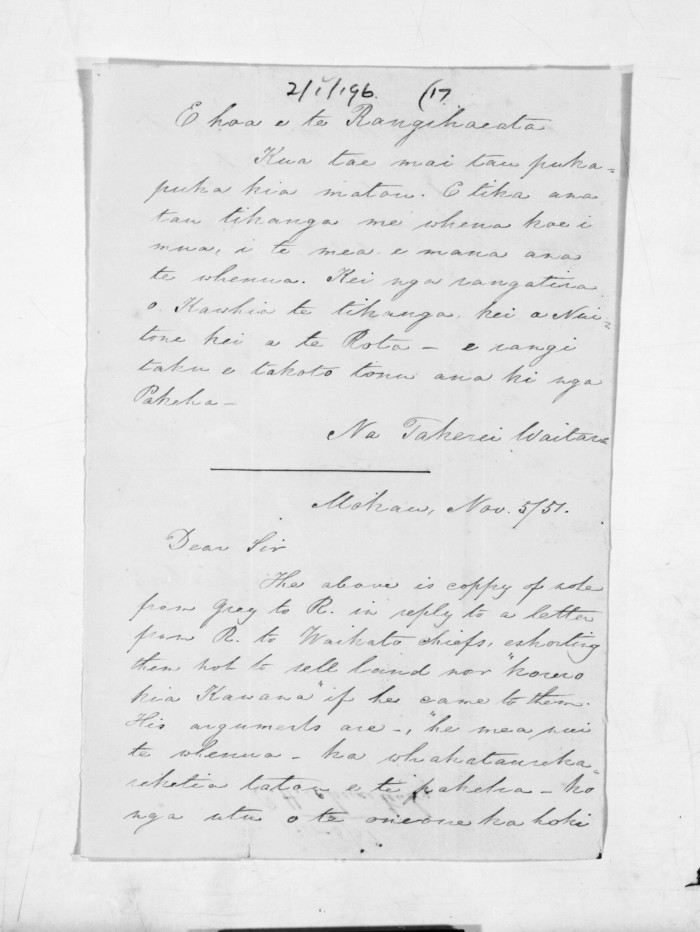 2/1/196. (17
E hoa e te Rangihaeata
Kua tae mai tau puka=
puka kia matou. E tika ana
tau tikanga me whena koe i
mua, i te mea e mana ana
te whenua. Kei nga rangatira
o Kawhia te tikanga, kei a Nui=
tone kei a te Rota – e rangi
taku e takoto tonu ana ki nga
Pakeha –
Na Takerei Waitara
Mokau, Nov. 5/51.
Dear Sir
The above is coppy of note
from Grey to R. in reply to a letter
from R. to Waikato chiefs, exhorting
them not to sell land nor "korero
kia Kawana" if he came to them.
His arguments are –, "he mea nui
te whenua – ka whakataureka=
reketia tatou e te pakeha – ko
nga utu o te oneone ka hoki